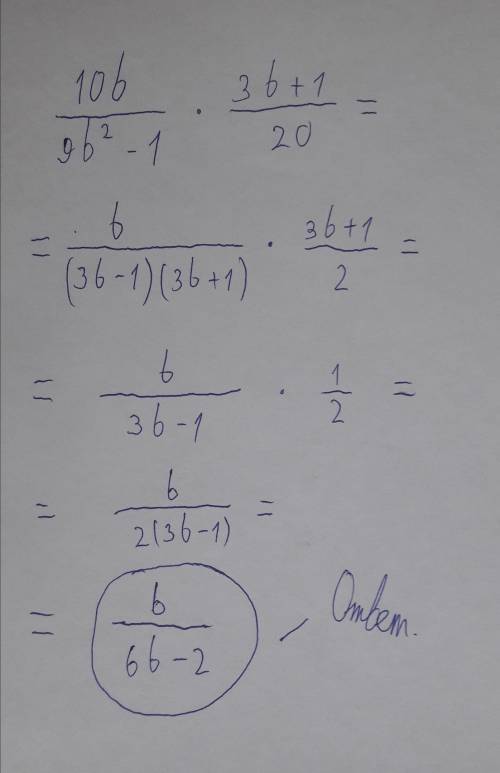 10b/(9b² - 1) · (3b+1)/20 =
= b/((3b-1)(3b+1)) · (3b+1)/2 =
= b/(3b-1) · 1/2 =
= b/(2(3b-1)) =
= b/(6b-2) - Ответ.